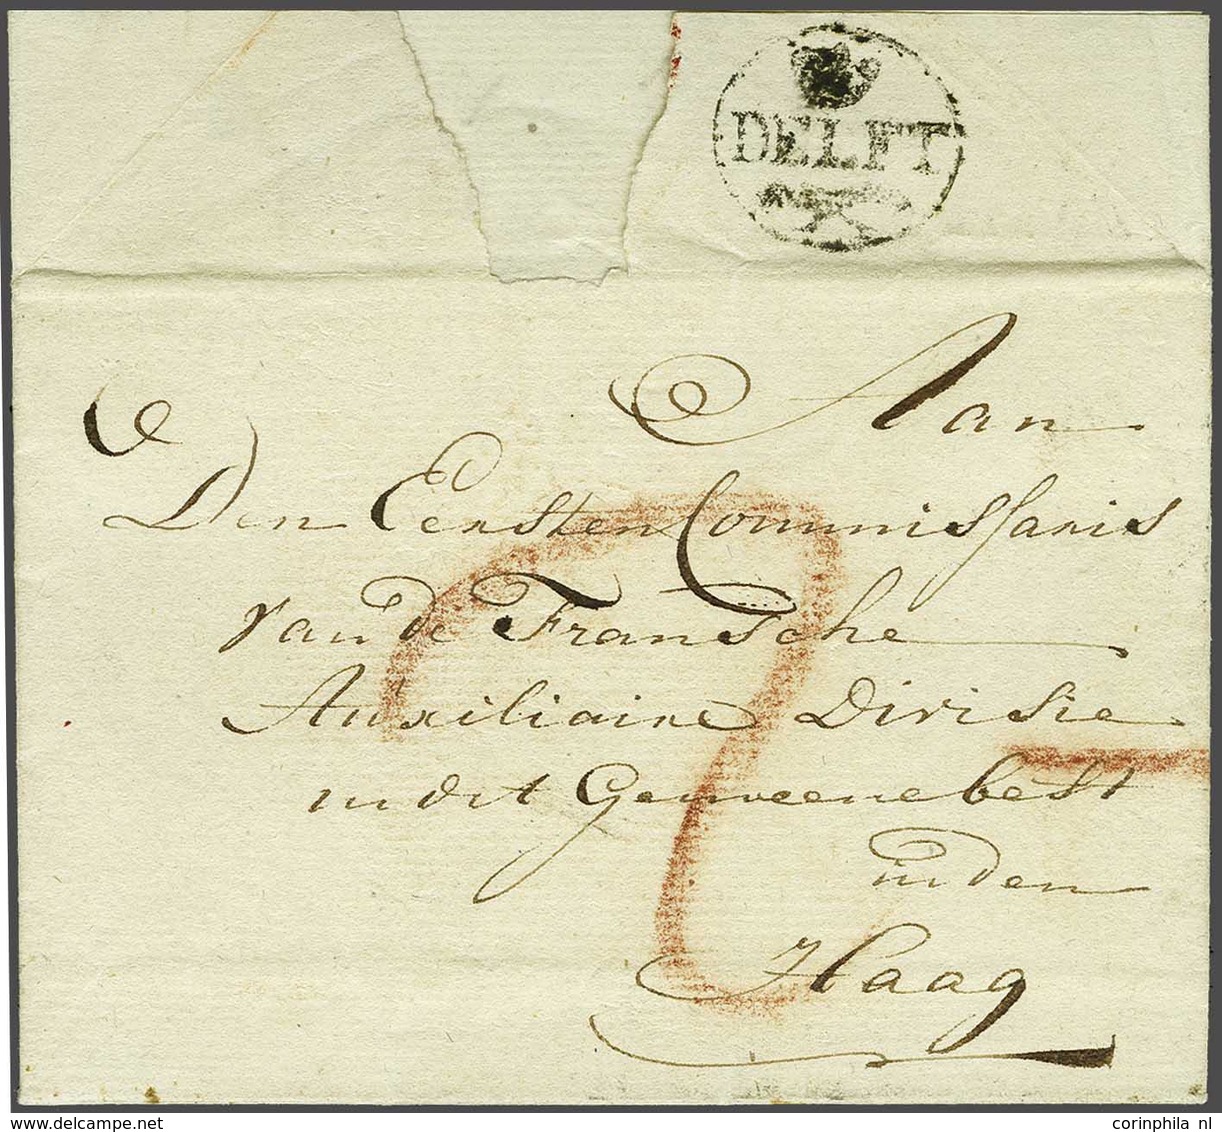 DELFT
Aan
Den Eersten Commissaris
van de Fransche
Auxiliaire Divisie
in dit Gemeenebest
in den
Haag
corinphila nl